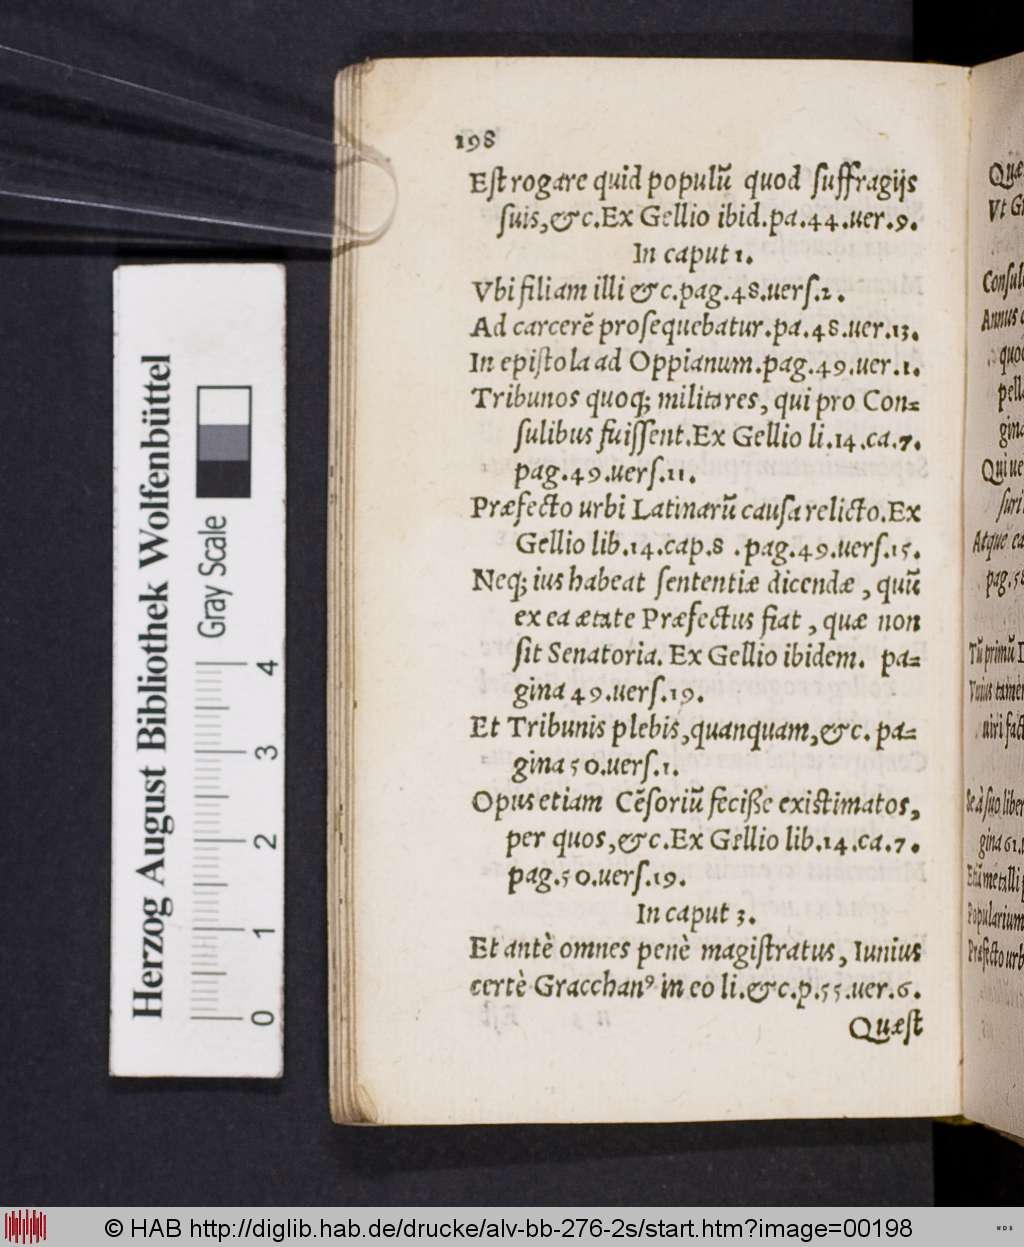 198
Est rogare quid populũ quod suffragijs
suis,&c.Ex Gellio ibid.pa.44.uer.9.
In caput 1.
Vbi filiam illi &c.pag.48.uers.2.
Ad carcerẽ prosequebatur.pa.48.uer.13.
In epistola ad Oppianum.pag.49.uer.1.
Tribunos quoq; militares, qui pro Con=
sulibus fuissent.Ex Gellio li.14.ca.7.
pag.49.uers.11.
Præfecto urbi Latinarũ causa relicto.Ex
Gellio lib.14.cap.8 .pag.49.uers.15.
Neq; ius habeat sententiæ dicendæ, quũ
ex ea ætate Præfectus fiat, quæ non
sit Senatoria. Ex Gellio ibidem. pa=
gina 49.uers.19.
Et Tribunis plebis,quanquam,&c. pa=
gina 50.uers.1.
Opus etiam Cẽsoriũ feciße existimatos,
per quos,&c.Ex Gellio lib.14.ca.7.
pag.50.uers.19.
In caput 3.
Et antè omnes penè magistratus, Iunius
certè Gracchanꝰ in eo li.&c.p.55.uer.6.
Quæst
Quæ
Vt G
Consul
Annus
quo
pell
gina
Qui ue
suri
Atque ea
pag.58
Tũ primũ
Vnius tamen
uiri fact
Se à suo liber
gina 61.
Etiã metalli
Popularium
Præfecto urb
Herzog August Bibliothek Wolfenbüttel
Gray Scale
0 1 2 3 4
© HAB http://diglib.hab.de/drucke/alv-bb-276-2s/start.htm?image=00198
WDB